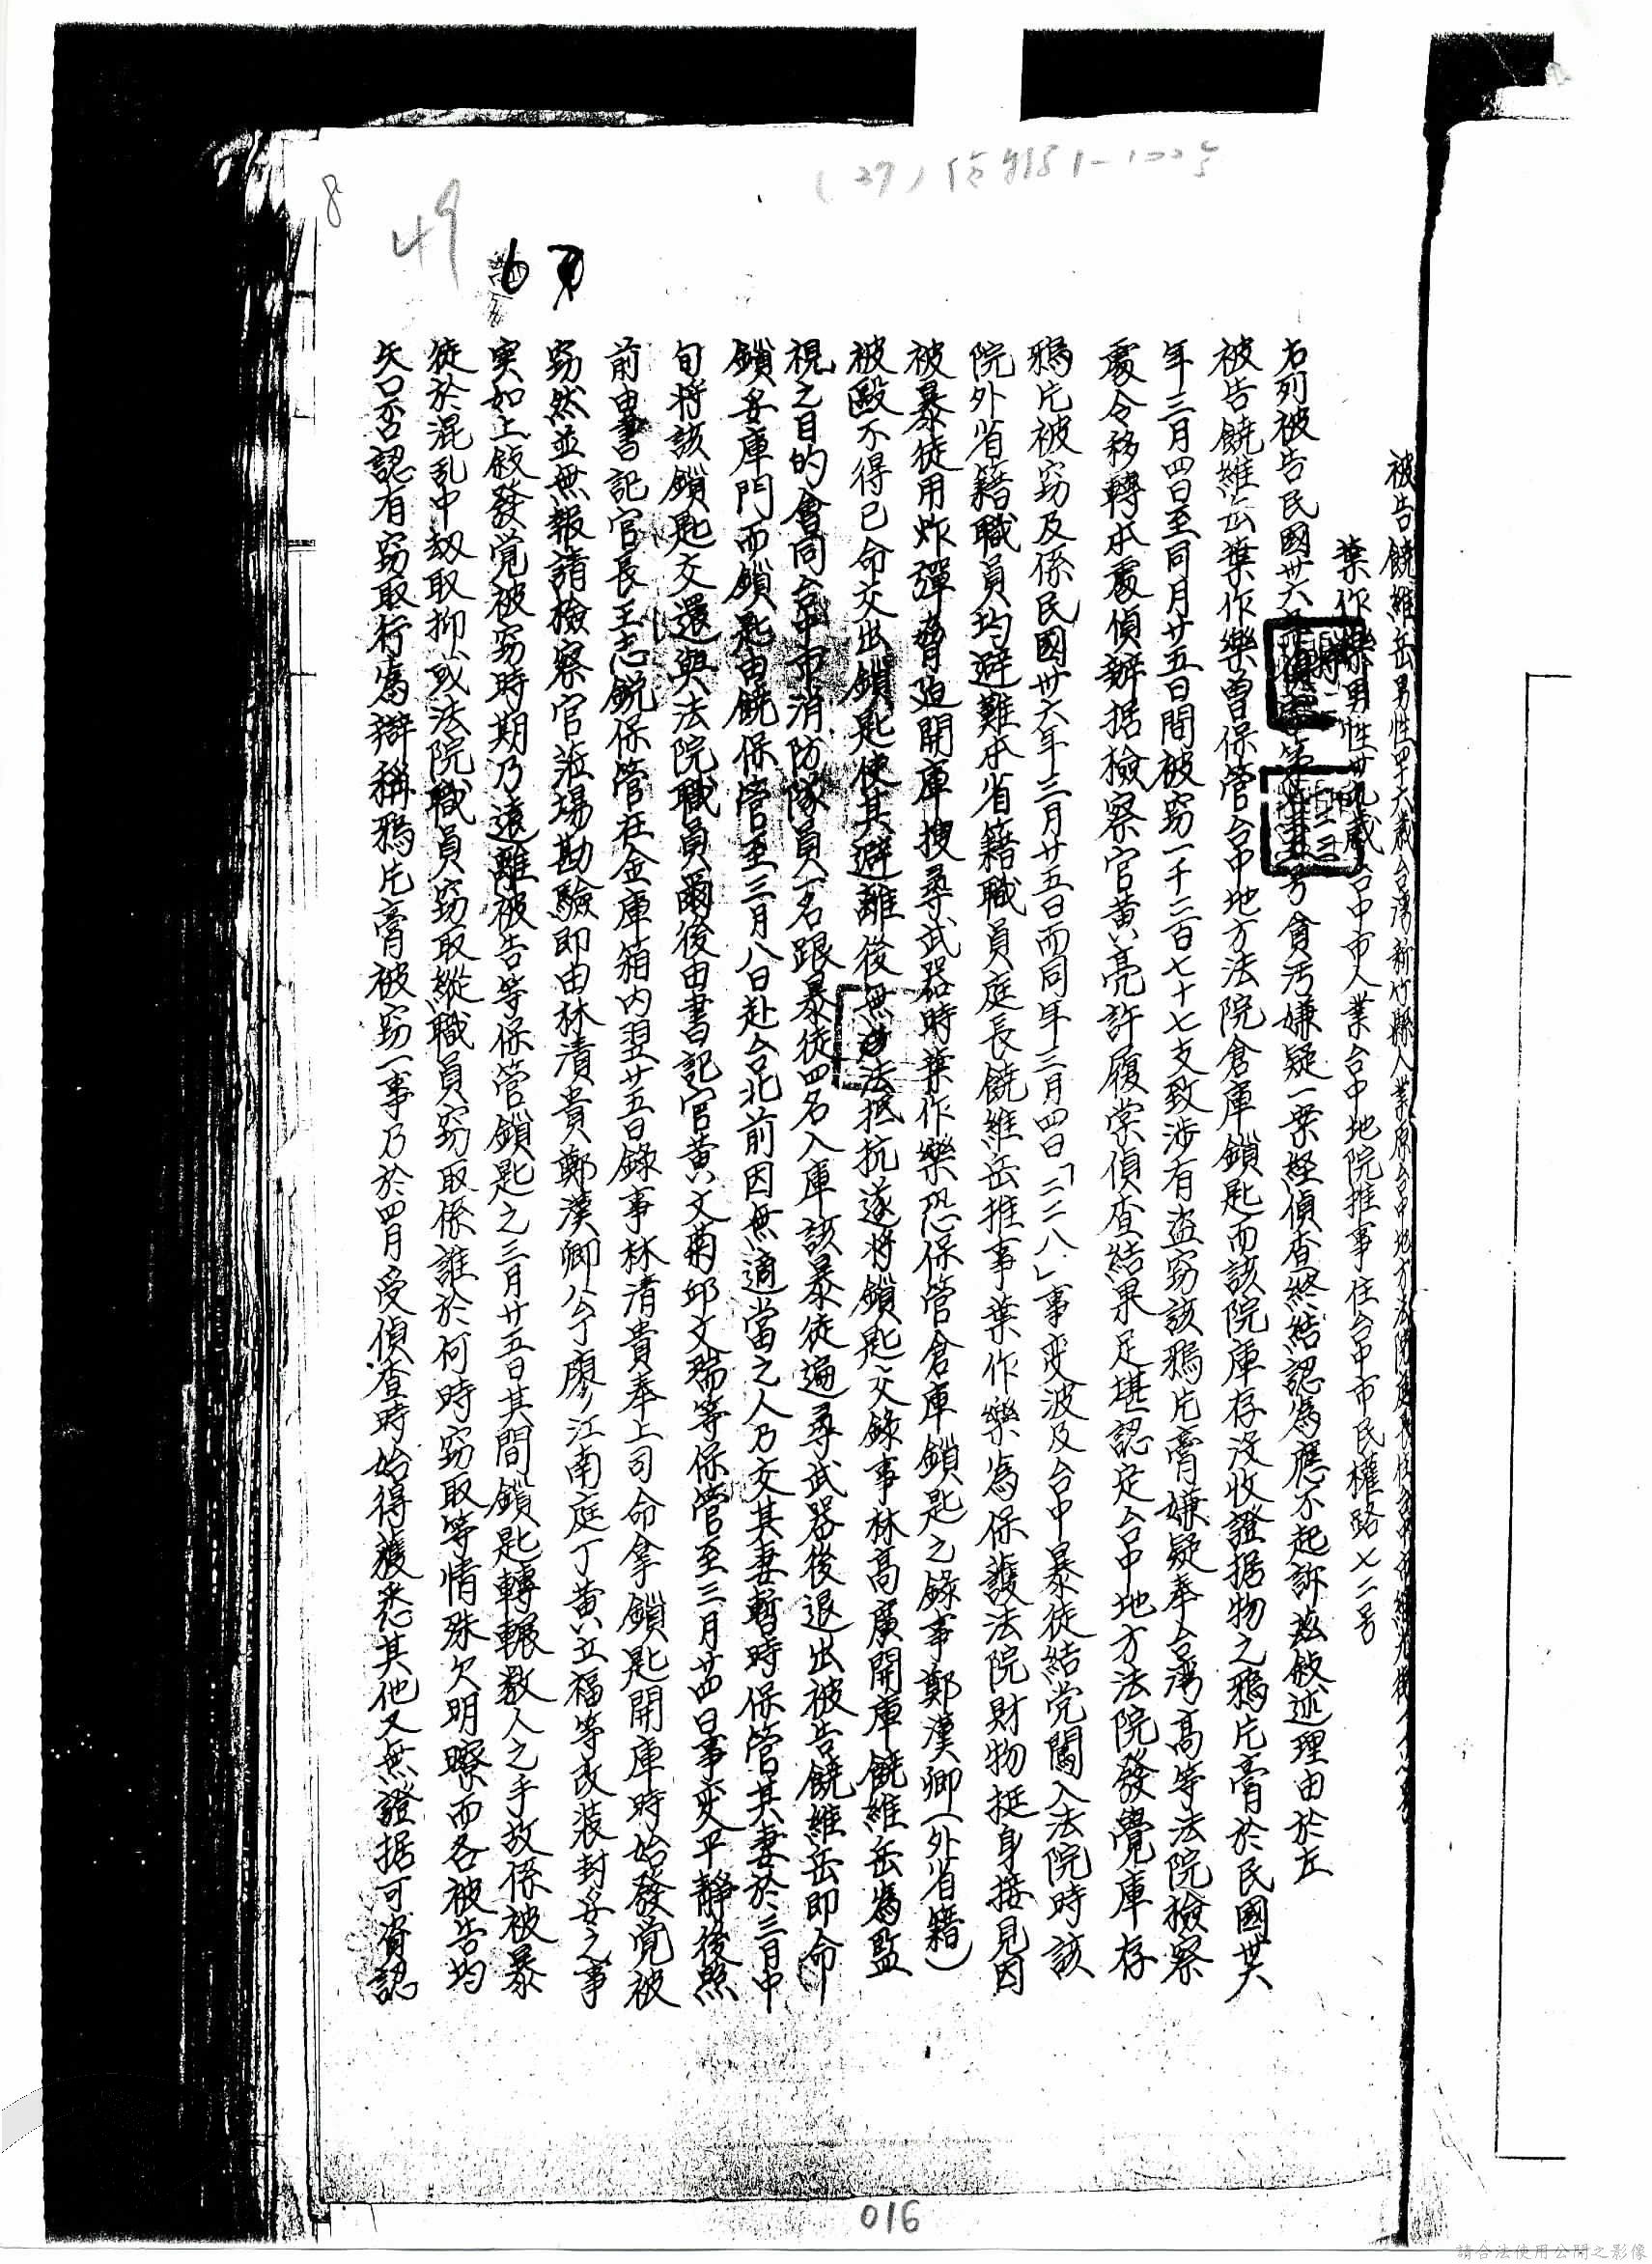 8
49
被告饒維岳男性四十六歲台灣新竹縣人業原台中地方法院庭長住台中市
葉作樂男性卅九歲台中市人業台中地院推事住台中市民權路七二号
右列被告民國卅六年 号貪污嫌疑一案経偵查終結認為應不起訴茲敍述理由於左
被告饒維岳葉作樂曾保管台中地方法院倉庫鎖匙而該院庫存沒收證据物之鴉片膏於民國卅六
年三月四日至同月廿五日間被窃一千二百七十七支致涉有盗窃該鴉片膏嫌疑奉台湾高等法院檢察
處令移轉本處偵辦据檢察官黃亮許履棠偵查結果足堪認定台中地方法院發覺庫存
鴉片被窃及係民國卅六年三月廿五日而同年三月四日「二二八」事变波及台中暴徒結党闖入法院時該
院外省籍職員均避難本省籍職員庭長饒維岳推事葉作樂為保護法院財物挺身接見因
被暴徒用炸彈脅迫開庫搜尋武器時葉作樂恐保管倉庫鎖匙之錄事鄭漢卿(外省籍)
被毆不得已命交出鎖匙使其避離後無法抵抗遂將鎖匙交錄事林高廣開庫饒維岳為監
視之目的會同台中市消防隊員一名跟暴徒四名入庫該暴徒遍尋武器後退出被告饒維岳即命
鎖妥庫門而鎖匙由饒保管至三月八日赴台北前因無適當之人乃交其妻暫時保管其妻於三月中
旬将該鎖匙交還與法院職員爾後由書記官黃文菊邱文瑞等保管至三月廿四日事变平靜後照
前由書記官長王志銳保管在金庫箱内翌廿五日錄事林清貴奉上司命拿鎖匙開庫時始發覚被
窃然並無報請檢察官蒞場勘驗即由林清貴鄭漢卿公丁廖江南庭丁黃立福等改裝封妥之事
実如上敍發覚被窃時期乃遠離被告等保管鎖匙之三月廿五日其間鎖匙轉輾数人之手故係被暴
徒於混乱中刼取抑或法院職員窃取縱職員窃取係誰於何時窃取等情殊欠明瞭而各被告均
矢口否認有窃取行為辯稱鴉片膏被窃一事乃於四月受偵查時始得獲悉其他又無證据可資認
016
請合法使用公開之影像